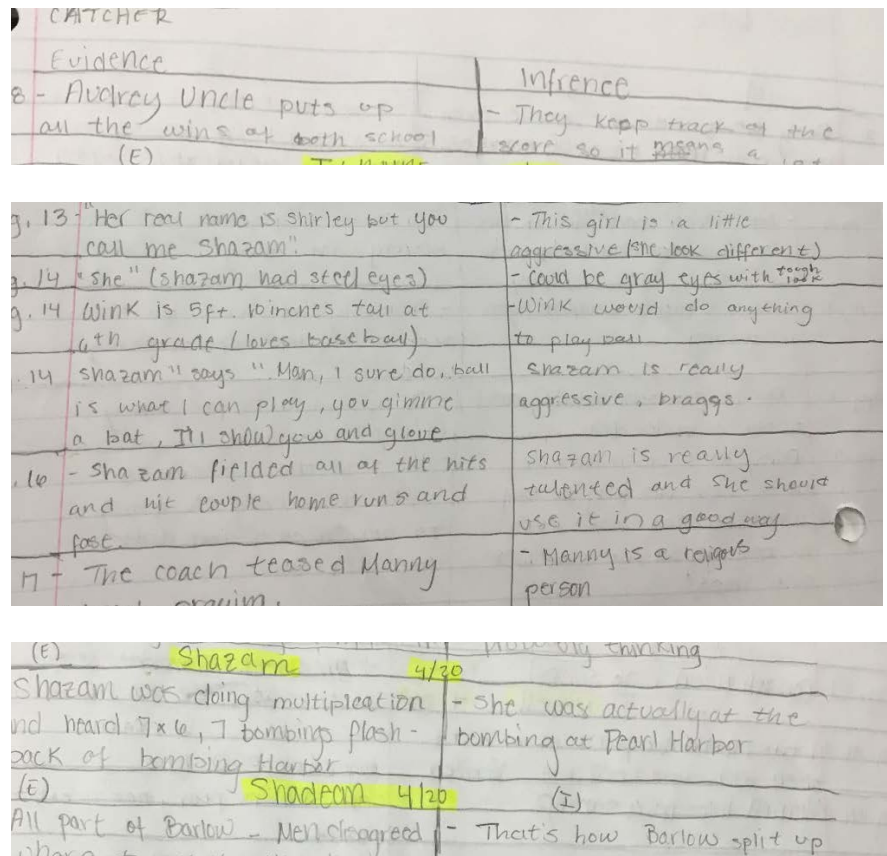 CATCHER
Evidence
Infrence
8 - Audrey Uncle puts up
all the wins of both school
(E)
- They kepp track of the
score so it means a
g. 13 - "Her real name is Shirley but you
call me Shazam".
- This girl is a little
aggressive (she look different)
g. 14 "she" (shazam had steel eyes)
- Could be gray eyes with tough look
g. 14 Wink is 5ft. 10 inches tall at
6th grade (loves baseball)
- Wink would do anything
to play ball
14 shazam" says "Man, I sure do, ball
is what I can play, you gimme
a bat, I'll show you and glove
Shazam is really
aggressive, braggs.
.16 - Shazam fielded all of the hits
and hit couple home runs and
fast.
Shazam is really
talented and she should
use it in a good way
17 - The coach teased Manny
- Manny is a religous
person
(E) Shazam 4/20
thinking
Shazam was doing multipleation
nd heard 7x6, 7 bombings flash-
back of bombing Harbor
- She was actually at the
bombing at Pearl Harbor
(E) Shadean 4/20 (I)
All part of Barlow - Men disagreed
- That's how Barlow split up